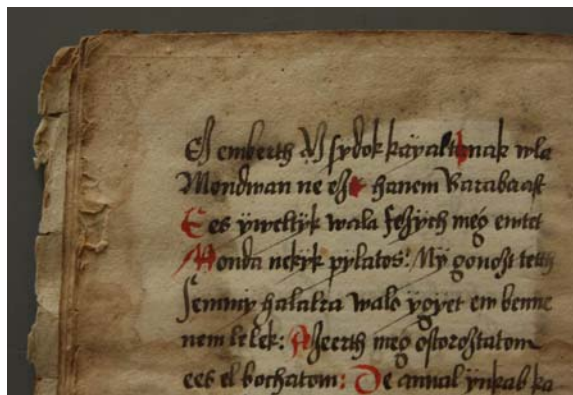 Eȷ emberth Aȷ sydok kayaltonak wla
Mondwan ne eȷt hanem Barabaast
Ees ÿweltÿk wala feȷÿch még emtet
Monda nekÿk pÿlatos: Mÿ gonoȷt tetth
Semmÿ halalra walo ÿgÿet em benne
nem lelek: Aȷeerth meg ostoroȷtatom
ees el bochatom: De annal ÿnkab ka